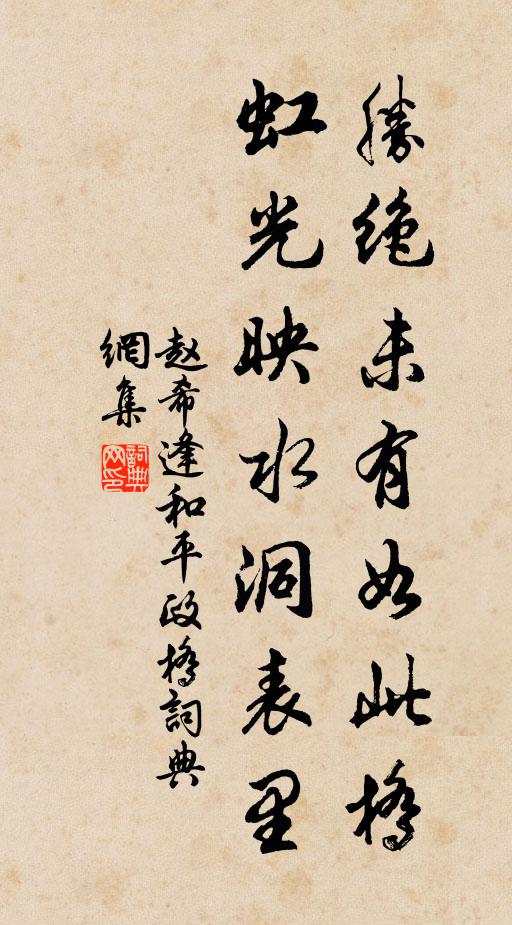 勝绝未有如此橋
虹光映水洞表里
赵希逢和平政橋詞典
網集
詞典
网印